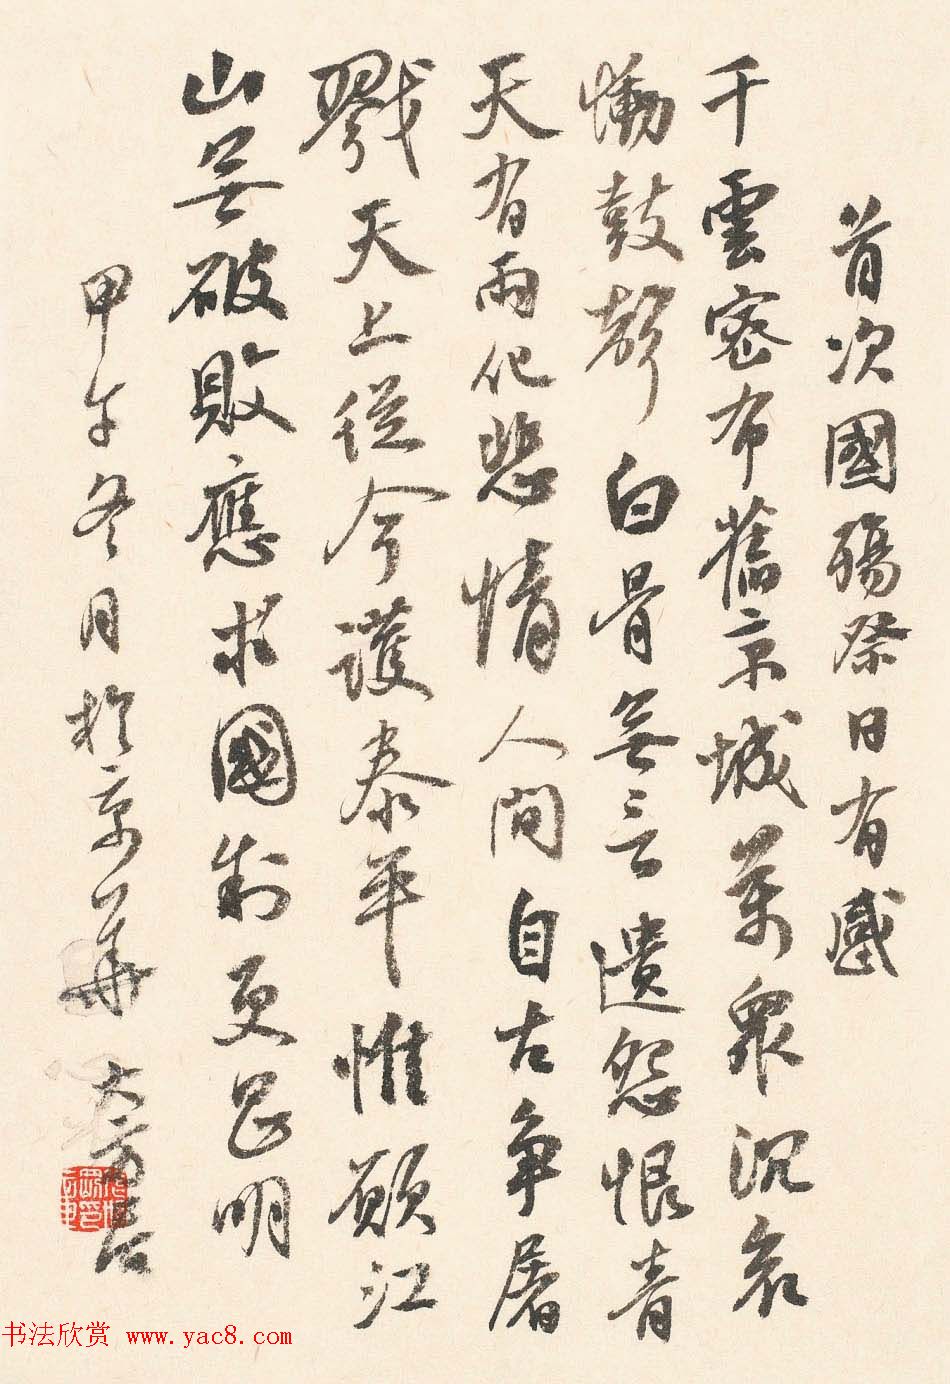 首次國殤祭日有感
千雲密布舊京城萬眾沉哀
慟鼓聲白骨無言遺怨恨青
天有雨化悲情人間自古爭屠
戮天上從今護泰平惟願江
山無破敗應求國制更昌明
甲午冬月於京華
书法欣赏 www.yac8.com